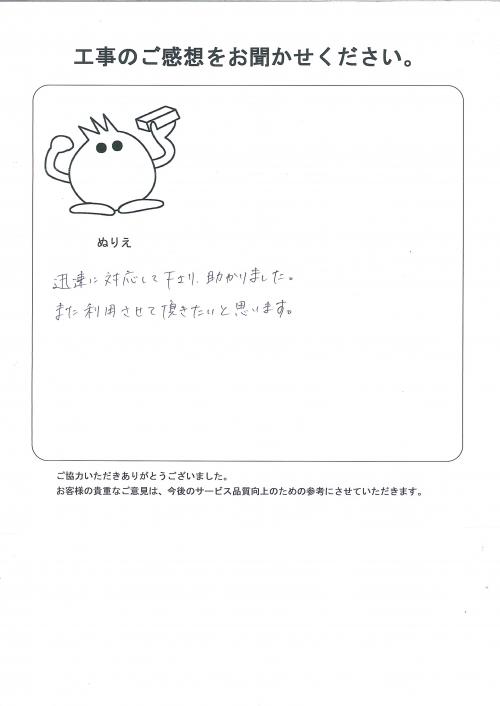 工事のご感想をお聞かせください。
ぬりえ
迅速に対応して下さり、助かりました。
また利用させて頂きたいと思います。
ご協力いただきありがとうございました。
お客様の貴重なご意見は、今後のサービス品質向上のための参考にさせていただきます。